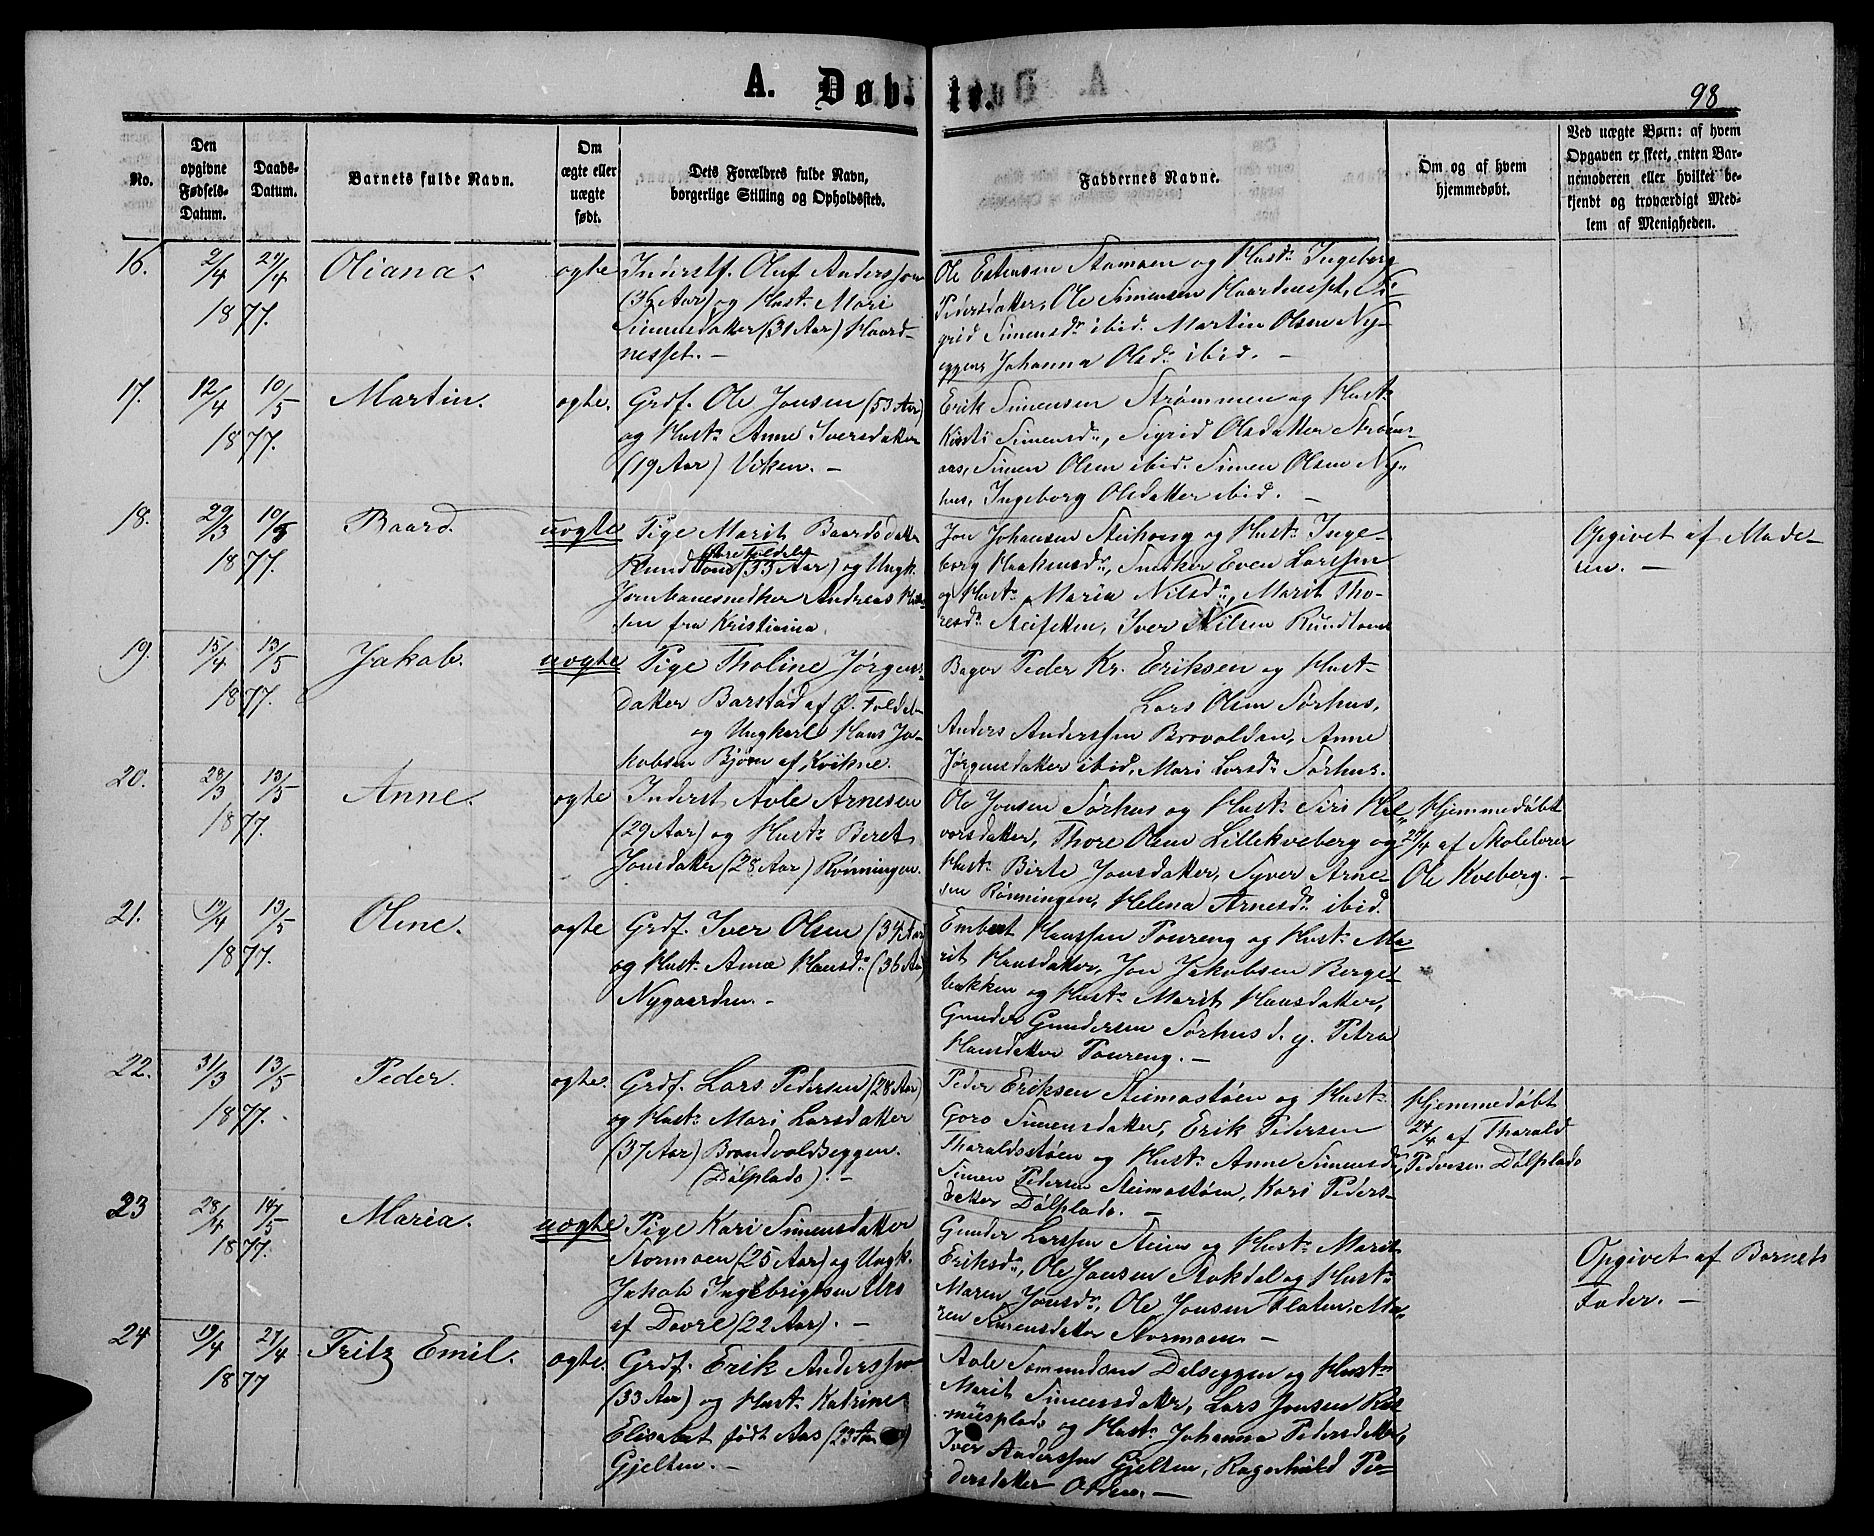 A. Døbte.
98
No.
Den opgivne Fødsels-Datum.
Daabs-Datum.
Barnets fulde Navn.
Om ægte eller uægte født.
Dets Forældres fulde Navn, borgerlige Stilling og Opholdssted.
Faddernes Navne.
Om og af hvem hjemmedøbt.
Ved uægte Børn: af hvem Opgaven er skeet, enten Barnemoderen eller hvilket bekjendt og troværdigt Medlem af Menigheden.
16. 2/4 1877. 29/4 Oliana. ægte
Inderstf. Oluf Anderssen
(36 Aar) og Hust. Mari
Simensdatter (31 Aar) Haard-
nesset. –
Ole Estensen Stamoen og Hust. Ingeborg
Pedersdatter, Ole Simensen Haardnesset, Si-
grid Simensd. ibid. Martin Olsen Ny-
eggen, Johanna Olsd. ibid. –
17. 12/4 1877. 10/5 Martin. ægte.
Grdf. Ole Jonsen (53 Aar)
og Hust. Anne Iversdatter
(19 Aar) Viken. –
Erik Simensen Strømmen og Hust.
Kirsti Simensd., Sigrid Olsdatter Strøms-
aas, Simen Olsen ibid. Simen Olsen Ny-
hus, Ingeborg Olsdatter ibid. –
18. 29/3 1877. 10/5 Baard. uægte
Pige Marit Baardsdatter
Rundtom (33 Aar) og Ungk.
Jernbanesnedker Andreas
fra Kristiania.
Jon Johansen Steihaug og Hust. Inge-
borg Haakensd., Snedker Even Larssen
og Hust. Maria Nilsd., Marit Tho-
resd. Steifetten, Iver Nilsen Rundtom
Opgivet af Mode-
ren. –
19. 15/4 1877. 13/5 Jakob. uægte
Pige Tholine Jørgens-
datter Barstad af Ø. Foldal
og Ungkarl Hans Ja-
kobsen Bjørn af Kvikne.
Bager Peder Kr. Eriksen og Hust.
Lars Olsen Sørhus,
Anders Anderssen Brovolden, Anne
Jørgensdatter ibid, Mari Larsd. Sørhus.
20. 28/3 1877. 13/5 Anne. ægte
Inderst Avle Arnesen
(29 Aar) og Hust. Beret
Jonsdatter (28 Aar) Rønningen.
Ole Jonsen Sørhus og Hust. Siri Hal-
vorsdatter, Thore Olsen Lillekveberg og
Hust. Birte Jonsdatter, Syver Arne-
sen Rønningen, Helena Arnesd. ibid.
Hjemmedøbt
29/4 af Skolelærer
Ole Kveberg. –
21. 19/4 1877. 13/5 Oline. ægte
Grdf. Iver Olsen (34 Aar)
og Hust. Anne Hansd. (36 Aar)
Nygaarden. –
Embret Hanssen Toureng og Hust. Ma-
rit Hansdatter, Jon Jakobsen Berge-
bakken og Hust. Marit Hansdatter,
Gunder Gundersen Sørhus d. y. Petra
Hansdatter Toureng. –
22. 31/3 1877. 13/5 Peder. ægte.
Grdf. Lars Pedersen (28 Aar)
og Hust. Mari Larsdatter
(37 Aar) Brandvoldseggen.
(Dølplads). –
Peder Eriksen Steimostøen og Hust.
Goro Simensdatter, Erik Pedersen
Tharaldsstøen og Hust. Anne Simensd.,
Simen Pedersen Steimostøen, Kari Peders-
datter Dølplads. –
Hjemmedøbt
24/4 af Tharald
Pedersen Dølplads
23 28/4 1877. 14/5 Maria. uægte
Pige Kari Simensdatter
Stormoen (25 Aar) og Ungk.
Jakob Ingebrigtsen Urs
af Dovre (22 Aar). –
Gunder Larssen Steien og Hust. Marit
Eriksd., Ole Jonsen Stokdal og Hust.
Maren Jonsd., Ole Jonsen Floten, Ma-
ren Simensdatter Stormoen –
Opgivet af Barnets
Fader. –
24. 19/4 1877 27/4 Fritz Emil. ægte.
Grdf. Erik Anderssen
(33 Aar) og Hust. Katrine
Elisabet født Aas (23 Aar)
Gjelten. –
Avle Sæmundsen Dalseggen og Hust.
Marit Simensdatter, Lars Jonsen
og Hust. Johanna Pedersdatter,
Iver Anderssen Gjelten, Ragnhild Pe-
dersdatter Odden. –